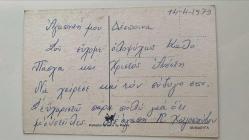 14-4-1979
Αγαπητή μου Δέσποινα
Σου εύχομαι ολοψύχως Καλό
Πάσχα και Χριστός Ανέστη
Να χαίρεσαι και τον σύζυγό σου.
Σ' ευχαριστώ πάρα πολύ για ότι